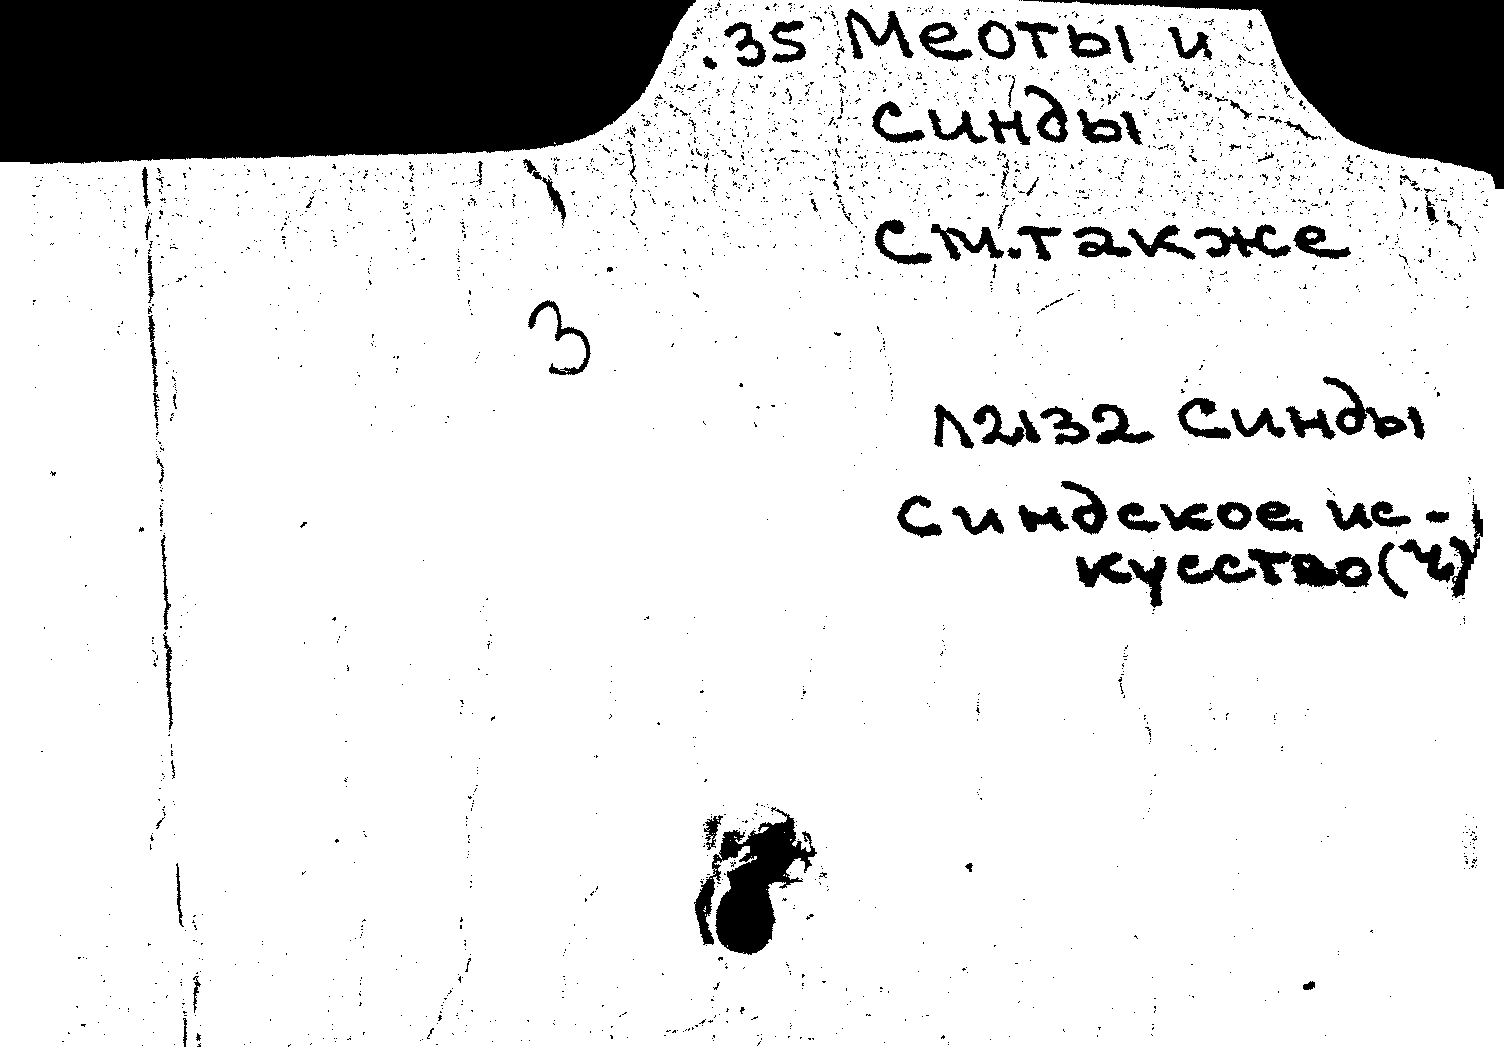 .35 Меоты и
синды
См. также
3
Л2132 Синды
Синдское ис-
кусство (ч)